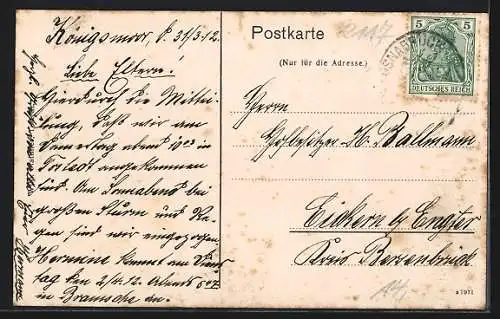 Königsmoor, d. 31/3.12.
Liebe Eltern!
Hierdurch die Mittei-
lung, daß wir am
abend
Tostedt angekommen
sind. Am Sonnabend bei
großen Sturm und Re-
gen sind wir eingezogen
Hermine kommt am Diens-
tag den 2/4.12. Abends 6
in Bramsche an.
Postkarte
(Nur für die Adresse.)
5 5
DEUTSCHES REICH
Herrn
Hofbesitzer H. Ballmann
Eickern b/ Engter
Kreis Bersenbrück